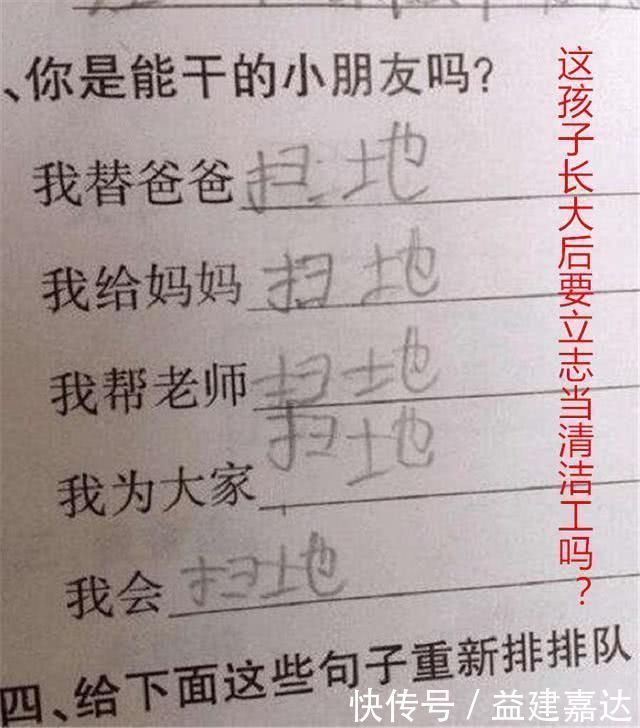 、你是能干的小朋友吗?
我替爸爸扫地
我给妈妈扫地
我帮老师扫地
我为大家扫地
我会扫地
四、给下面这些句子重新排排队
这孩子长大后要立志当清洁工吗?
快传号/益建嘉达